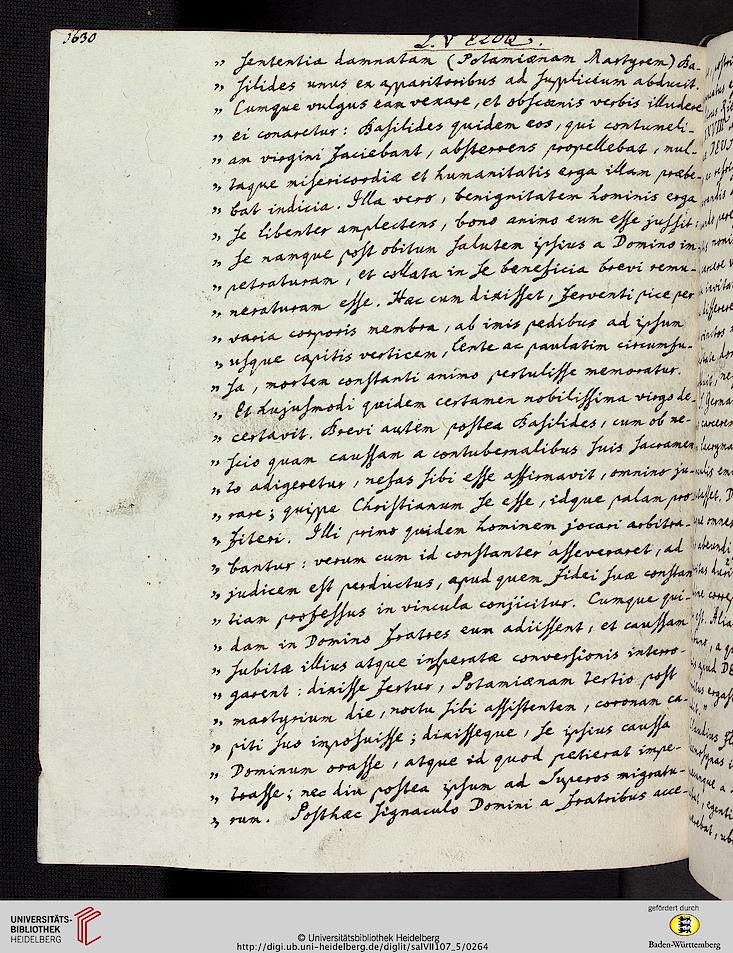 1630
L. V ELOQ.
„ sententia damnatam (Potamiænam Martyrem) Ba-
„ silides unus ex apparitoribus ad supplicium abducit.
„ Cumque vulgus eam vexare, et obscœnis verbis illudere
„ ei conaretur: Basilides quidem eos, qui contumeli-
„ am virgini faciebant, absterrens propellebat, mul-
„ taque misericordiæ et humanitatis erga illam præbe-
„ bat indicia. Illa vero, benignitatem hominis erga
„ se libenter amplectens, bono animo eum esse jussit:
„ se namque post obitum salutem ipsius a Domino im-
„ petraturam, et collata in se beneficia brevi remu-
„ neraturam esse. Hæc cum dixisset, ferventi pice per
„ varia corporis membra, ab imis pedibus ad ipsum
„ usque capitis verticem, lente ac paulatim circumfu-
„ sa, mortem constanti animo pertulisse memoratur.
„ Et hujusmodi quidem certamen nobilissima virgo de-
„ certavit. Brevi autem postea Basilides, cum ob ne-
„ scio quam caussam a contubernalibus suis sacramen-
„ to adigeretur, nefas sibi esse affirmavit, omnino ju-
„ rare; quippe Christianum se esse, idque palam pro-
„ fiteri. Illi primo quidem hominem jocari arbitra-
„ bantur: verum cum id constanter asseveraret, ad
„ judicem est perductus, apud quem fidei suæ constan-
„ tiam professus in vincula conjicitur. Cumque qui-
„ dam in Domino fratres eum adiissent, et caussam
„ subitæ illius atque insperatæ conversionis interro-
„ garent: dixisse fertur, Potamiænam tertio post
„ martyrium die, noctu sibi assistentem, coronam ca-
„ piti suo imposuisse; dixisseque, se ipsius caussa
„ Dominum orasse, atque id quod petierat impe-
„ trasse; nec diu postea ipsum ad Superos migratu-
„ rum. Posthæc signaculo Domini a fratribus acce-
UNIVERSITÄTS-
BIBLIOTHEK
HEIDELBERG
© Universitätsbibliothek Heidelberg
http://digi.ub.uni-heidelberg.de/diglit/salVII107_5/0264
gefördert durch
Baden-Württemberg